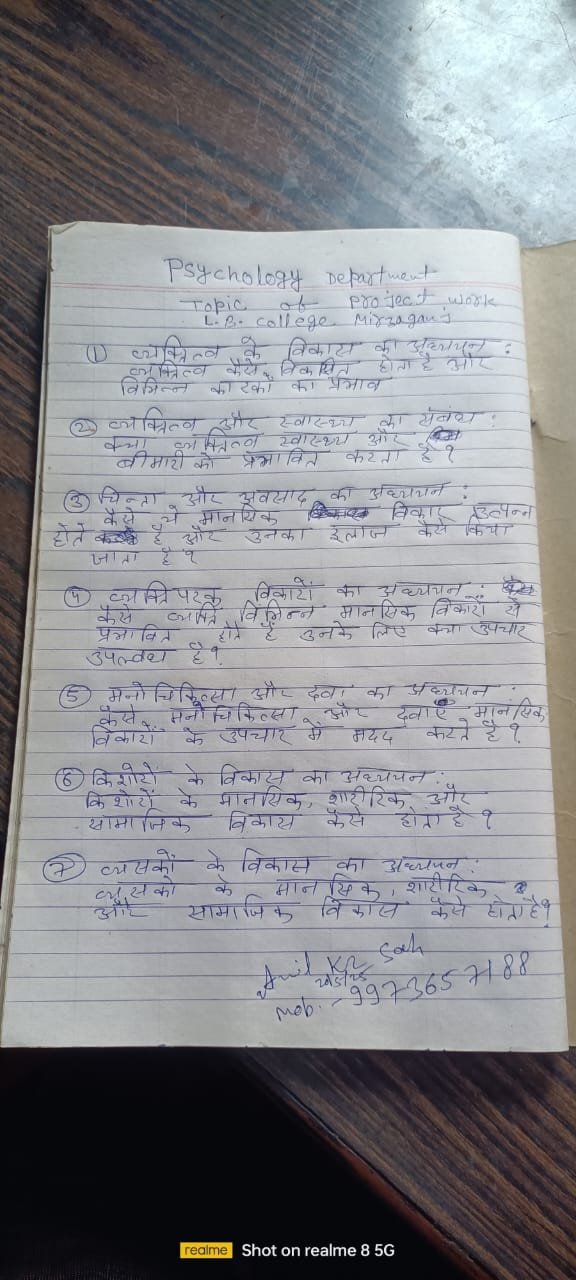 Psychology Department
Topic of Project work
L.B. College Mirzaganj
① व्यक्तित्व के विकास का अध्ययन :
व्यक्तित्व कैसे विकसित होता है और
विभिन्न कारकों का प्रभाव
② व्यक्तित्व और स्वास्थ्य का संबंध :
क्या व्यक्तित्व स्वास्थ्य और
बीमारी को प्रभावित करता है ?
③ चिन्ता और अवसाद का अध्ययन :
कैसे ये मानसिक विकार उत्पन्न
होते है और उनका इलाज कैसे किया
जाता है ?
④ व्यक्तिपरक विकारों का अध्ययन :
कैसे व्यक्ति विभिन्न मानसिक विकारों से
प्रभावित होते हैं उनके लिए क्या उपचार
उपलब्ध है ?
⑤ मनोचिकित्सा और दवा का अध्ययन :
कैसे मनोचिकित्सा और दवाएं मानसिक
विकारों के उपचार में मदद करते है ?
⑥ किशोरों के विकास का अध्ययन :
किशोरों के मानसिक, शारीरिक और
सामाजिक विकास कैसे होता है ?
⑦ व्यसकों के विकास का अध्ययन :
व्यसकों के मानसिक, शारीरिक
और सामाजिक विकास कैसे होता है ?
Anil Kr Sah
Mob. - 9973657188
realme Shot on realme 8 5G